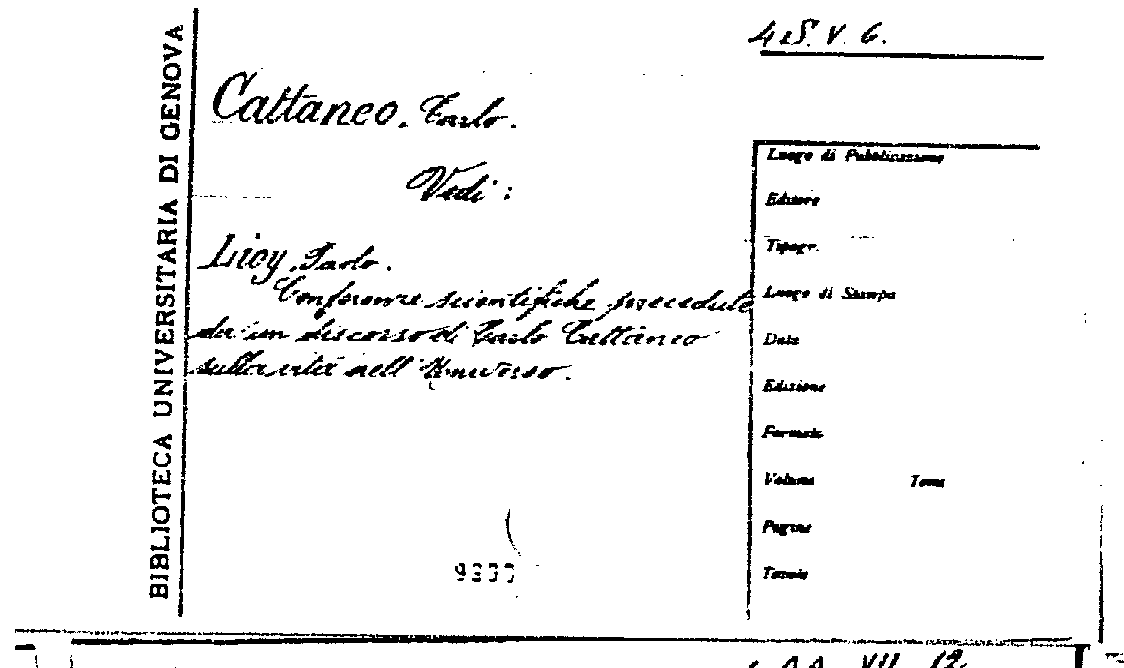 4.S.V.6.
BIBLIOTECA UNIVERSITARIA DI GENOVA
Cattaneo. Carlo.
Vedi:
Lioy. Paolo.
Conferenze scientifiche precedute
da un discorso di Carlo Cattaneo
sulla vita nell'Universo.
Luogo di Pubblicazione
Editore
Tipogr.
Luogo di Stampa
Data
Edizione
Formato
Volume Tomo
Pagine
VII. 12.